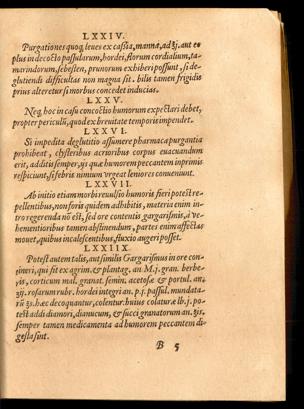 LXXIV.
Purgationes quoq; leues ex cassia, manna, ad ʒj. aut eo
plus in decocto passularum, hordei, florum cordialium, ta-
marindorum, sebesten, prunorum exhiberi possunt, si de-
glutiendi difficultas non magna sit. bilis tamen frigidis
prius alteretur si morbus concedet inducias.
LXXV.
Neq; hoc in casu concoctio humorum expectari debet,
propter periculū, quod ex breuitate temporis impendet.
LXXVI.
Si impedita deglutitio assumere pharmaca purgantia
prohibeat, clysteribus acrioribus corpus euacuandum
erit, additis semper, ijs quæ humorem peccantem inprimis
respiciunt, si febris nimium vrgeat leniores conueniunt.
LXXVII.
Ab initio etiam morbi reuulsio humoris fieri potest re-
pellentibus, non foris quidem adhibitis, materia enim in-
tro regerenda nō est, sed ore contentis gargarismis, à ve-
hementioribus tamen abstinendum, partes enim affectas
mouet, quibus incalescentibus, fluxio augeri posset.
LXXIIX.
Potest autem talis, aut similis Gargarismus in ore con-
tineri, qui fit ex agrim. & plantag. an M.j. gran. berbe-
ris, corticum mal. granat. semin. acetosæ & portul. an.
ʒij. rosarum rubr. hordei integri an. p.j. passul. mundata-
rū ʒs. hæc decoquantur, colentur. huius colaturæ lb.j. po-
test addi diamori, dianucum, & succi granatorum an. ʒs.
semper tamen medicamenta ad humorem peccantem di-
gesta sint.
B 5